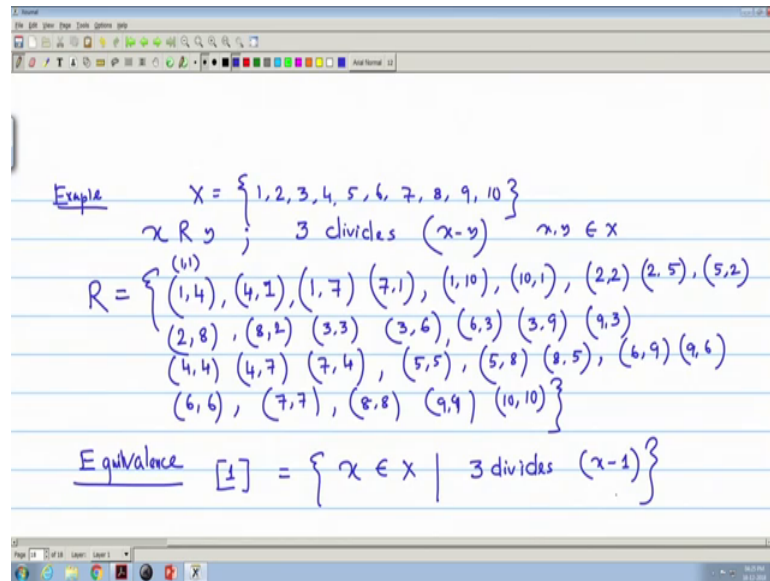 Journal
File Edit View Page Tools Options Help
Arial Normal 12
Exaple X = { 1, 2, 3, 4, 5, 6, 7, 8, 9, 10 }
x R y ; 3 divides (x-y) x, y ∈ X
(1,1)
R = { (1,4), (4,1), (1,7) (7,1), (1,10), (10,1), (2,2) (2,5), (5,2)
(2,8), (8,2) (3,3) (3,6), (6,3) (3,9) (9,3)
(4,4) (4,7) (7,4), (5,5), (5,8) (8,5), (6,9) (9,6)
(6,6), (7,7), (8,8) (9,9) (10,10) }
Equivalence [1] = { x ∈ X | 3 divides (x-1) }
Page 18 of 18 Layer: Layer 1